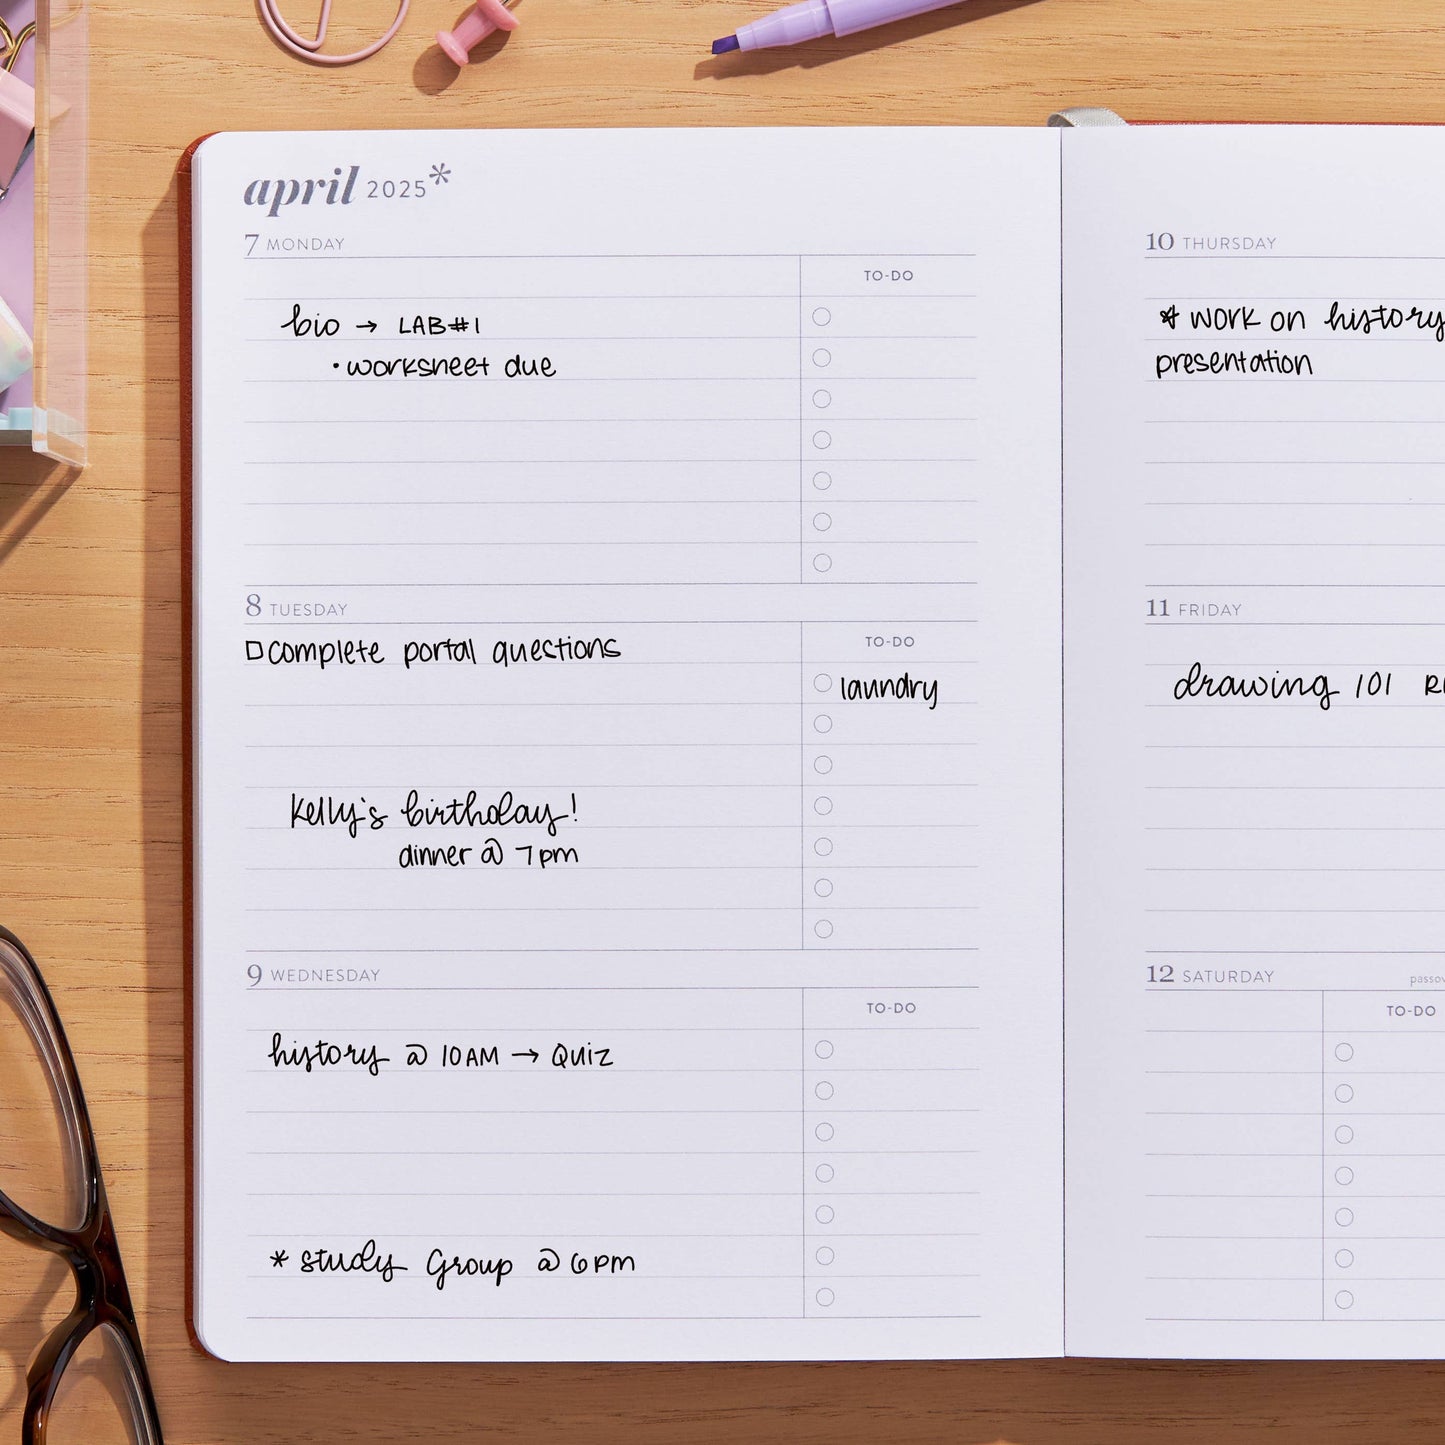 april 2025*
7 MONDAY
TO-DO
bio → LAB#1
• worksheet due
8 TUESDAY
TO-DO
□ complete portal questions
laundry
Kelly's birthday!
dinner @ 7pm
9 WEDNESDAY
TO-DO
history @ 10AM → QUIZ
* study Group @ 6PM
10 THURSDAY
* WORK ON history
presentation
11 FRIDAY
drawing 101
12 SATURDAY
TO-DO